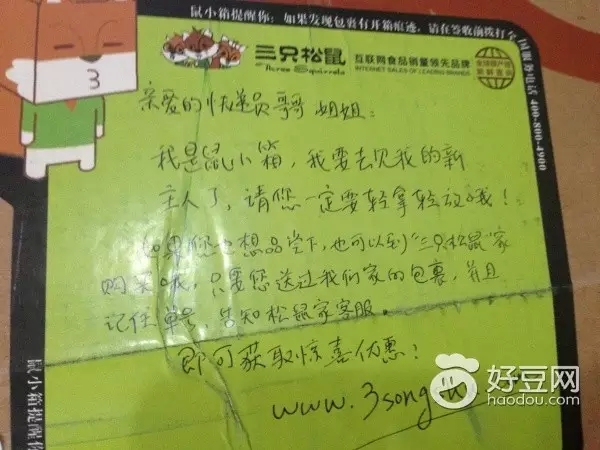 鼠小箱提醒你：如果发现包裹有开箱痕迹，请在签收前拨打全
国服务电话 400-800-4900
三只松鼠
Three Squirrels
互联网食品销量领先品牌
INTERNET SALES OF LEADING BRANDS
亲爱的快递员哥哥姐姐：
我是鼠小箱，我要去见我的新
主人了，请您一定要轻拿轻放哦！
如果您也想品尝下，也可以到"三只松鼠"家
购买哦，只要您送过我们家的包裹，并且
记住单号，告知松鼠家客服。
即可获取惊喜优惠！
www.3song
鼠小箱提醒你
好豆网
haodou.com